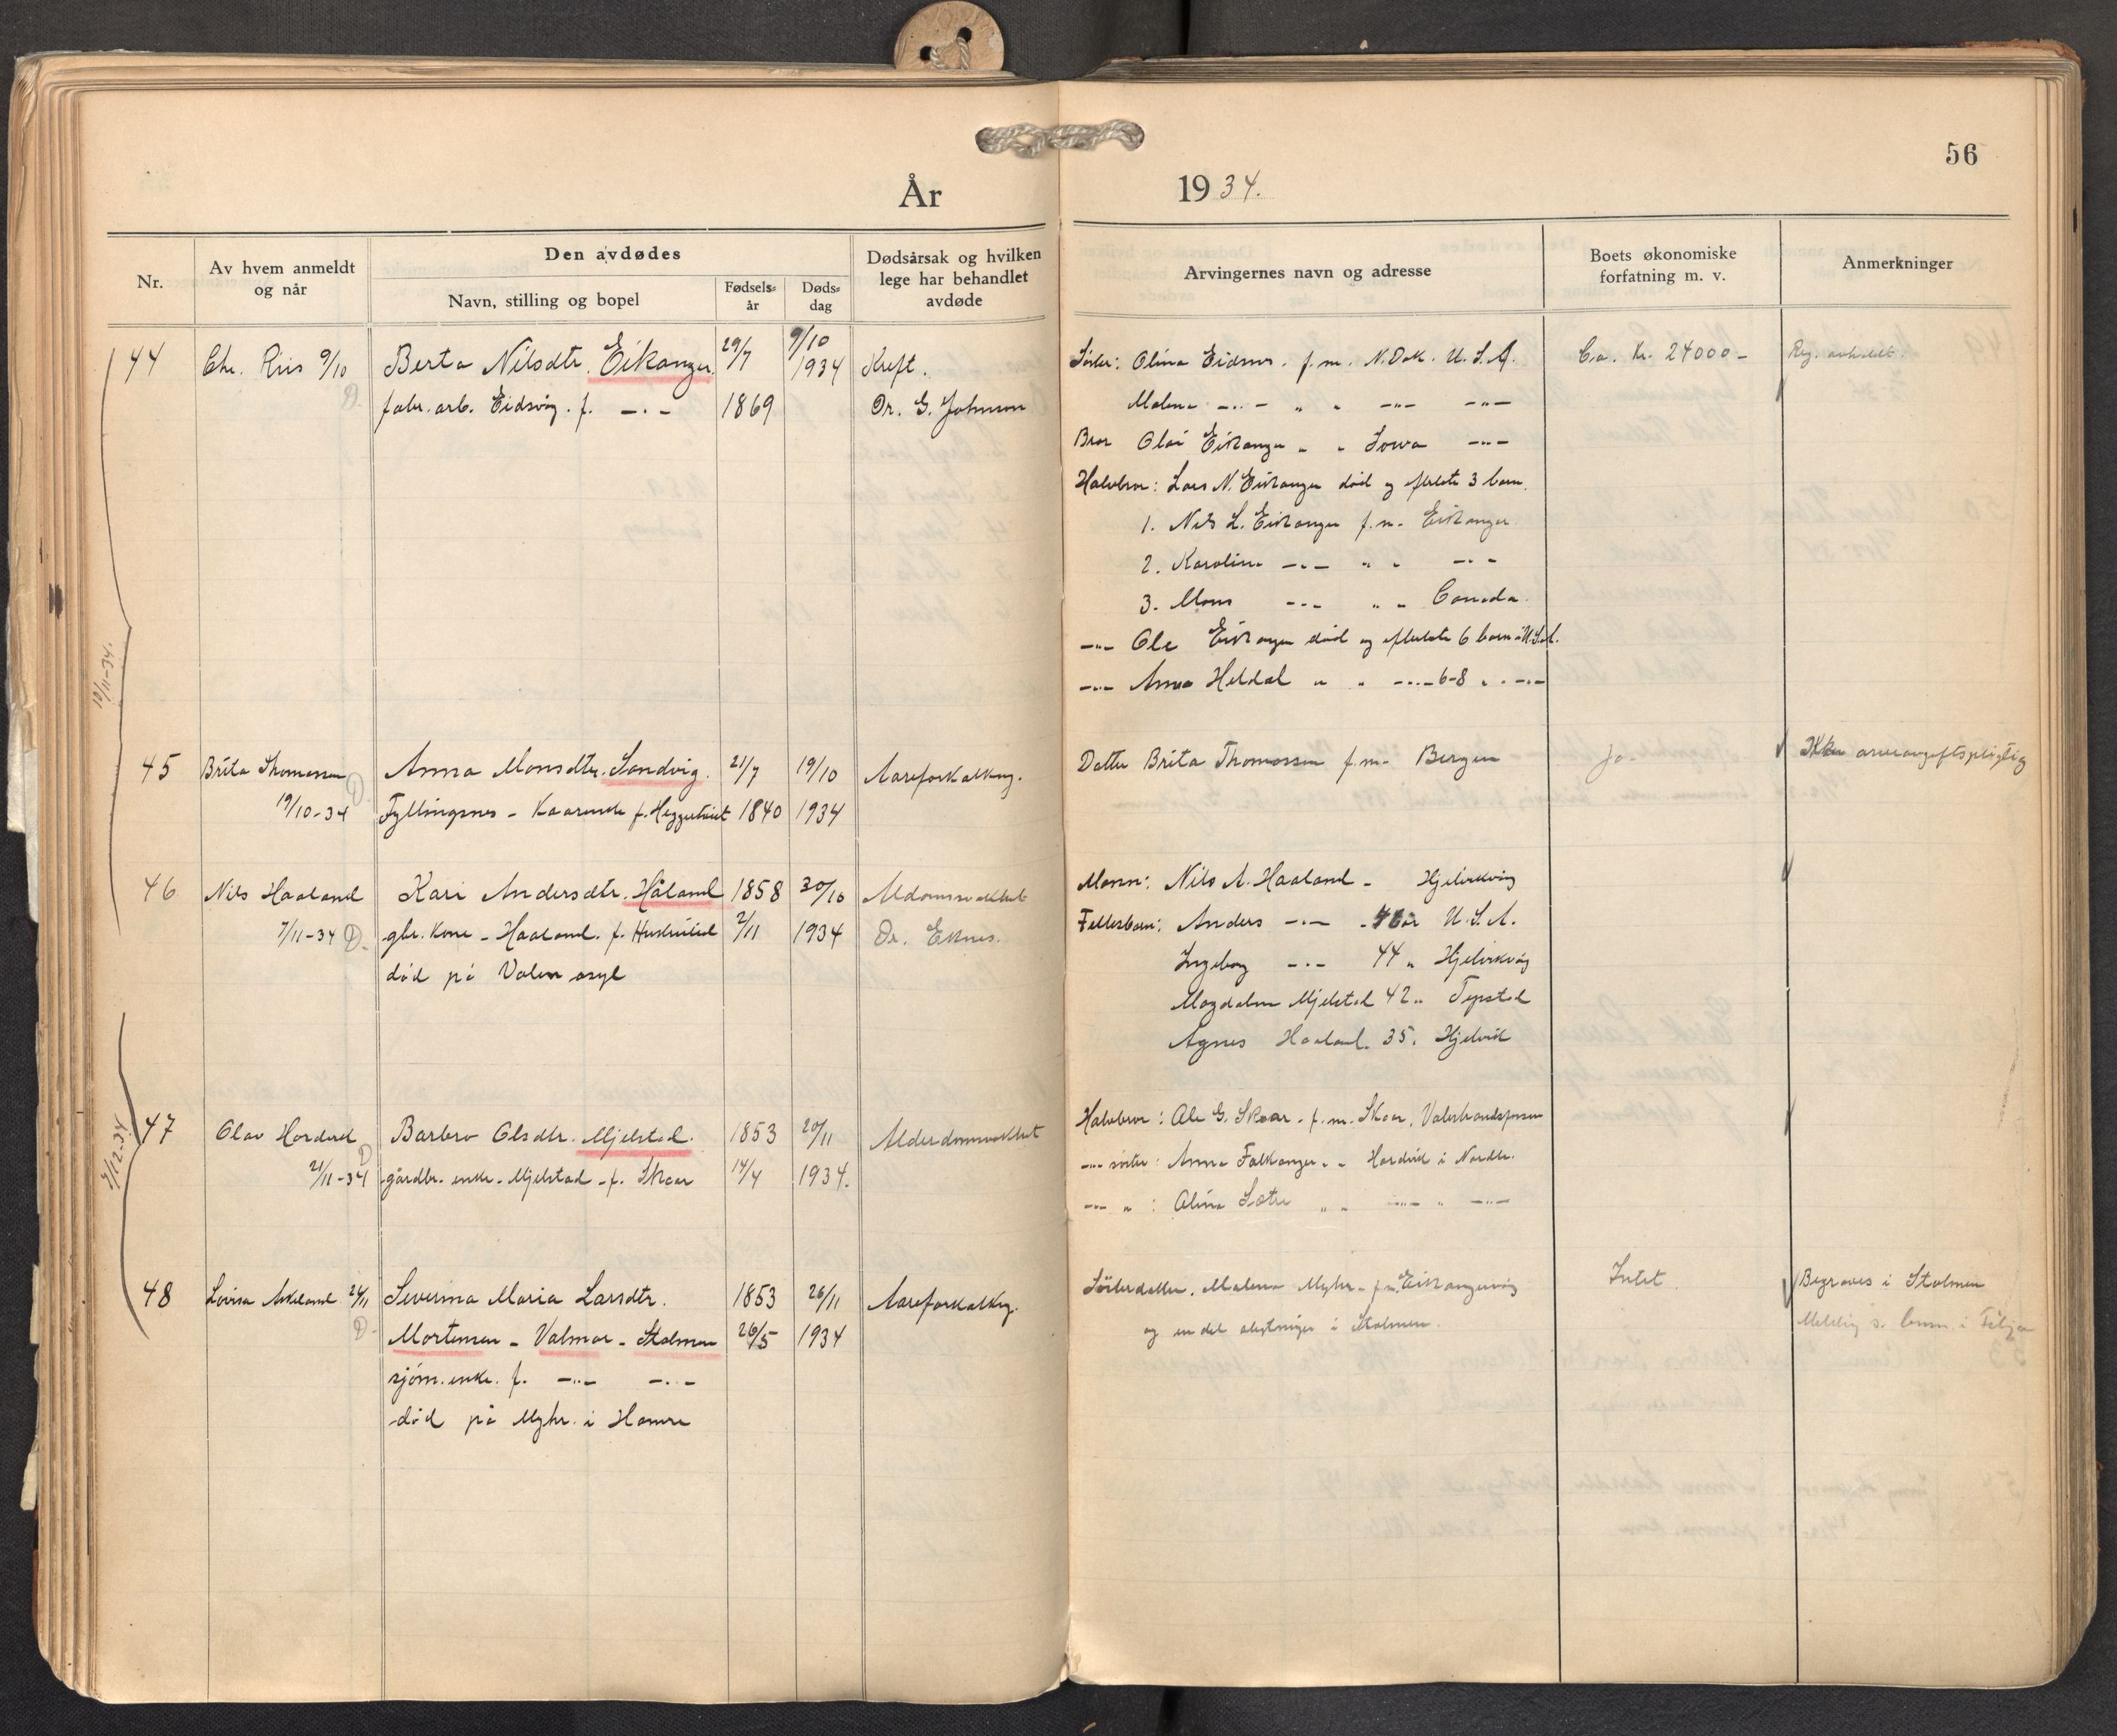 56
År 1934.
Nr.
Av hvem anmeldt og når
Den avdødes
Navn, stilling og bopel
Fødsels= år
Døds= dag
Dødsårsak og hvilken lege har behandlet avdøde
Arvingernes navn og adresse
Boets økonomiske forfatning m. v.
Anmerkninger
44 Chr. Riis 9/10 Berta Nilsdtr. Eikanger. 29/7 9/10 1934 Kreft.
fabr. arb. Eidsvåg. f. -"- 1869 Dr. G. Johnson
Søster: Olina f. m. N. Dak. U. S. A. Ca. Kr. 24000-
Malena -"- " " -"- -"-
Bror Olai Eikanger " " Iowa -"-
Halvbror: Lars N. Eikanger død og efterlate 3 barn.
1. Nils L. Eikanger f. m. Eikanger
2. Karoline -"- " " -"-
3. Mons -"- " " Canada
-"- Ole Eikanger død og efterlate 6 barn i U.S.A.
-"- Anna Heldal " " -"- 6-8 " " -"-
10/11-34.
45 Brita Thomassen Anna Monsdtr. Sandvig. 21/7 19/10 Aareforkalkng.
19/10-34 Fyllingsnes - f. 1840 1934
Datter Brita Thomassen f. m. Bergen Ja. Ikke arveavgiftspligtig
46 Nils Haaland Kari Andersdtr. Håland 1858 30/10
7/11-34 gbr. kone - Haaland. f. 2/11 1934 Dr. Eknes.
død på Valen asyl
Mann: Nils A. Haaland - Hjelvikvåg
Fellesbarn: Anders -"- år U. S. A.
Ingeborg -"- 44 " Hjelvikvåg
Magdalena Mjelstad 42 "
Agnes Haaland. 35. Hjelvik
47 Olav Hordvik Barbro Olsdtr. Mjelstad. 1853 20/11 Alderdomsvakhet
21/11-34 gårdbr. enke. Mjelstad - f. Skaar 14/4 1934.
Halvbror: Ole G. Skaar. f. m. Skaar,
-"- søster: Anna Falkanger " " Hordvik i
-"- " : Olina Sætre " " -"- " -"-
5/12-34
48 Lovisa Askeland 24/11 Severina Maria Larsdtr. 1853 26/11 Aareforkalkng.
Mortensen - Valmar - Stolmen 26/5 1934
sjøm. enke. f. -"- -"-
død på Myhr. i Hamre
Søsterdatter. Malena Myhr - f. m. Eikangervåg Intet.
og en del slegtninger i Stolmen.
Begraves i Stolmen